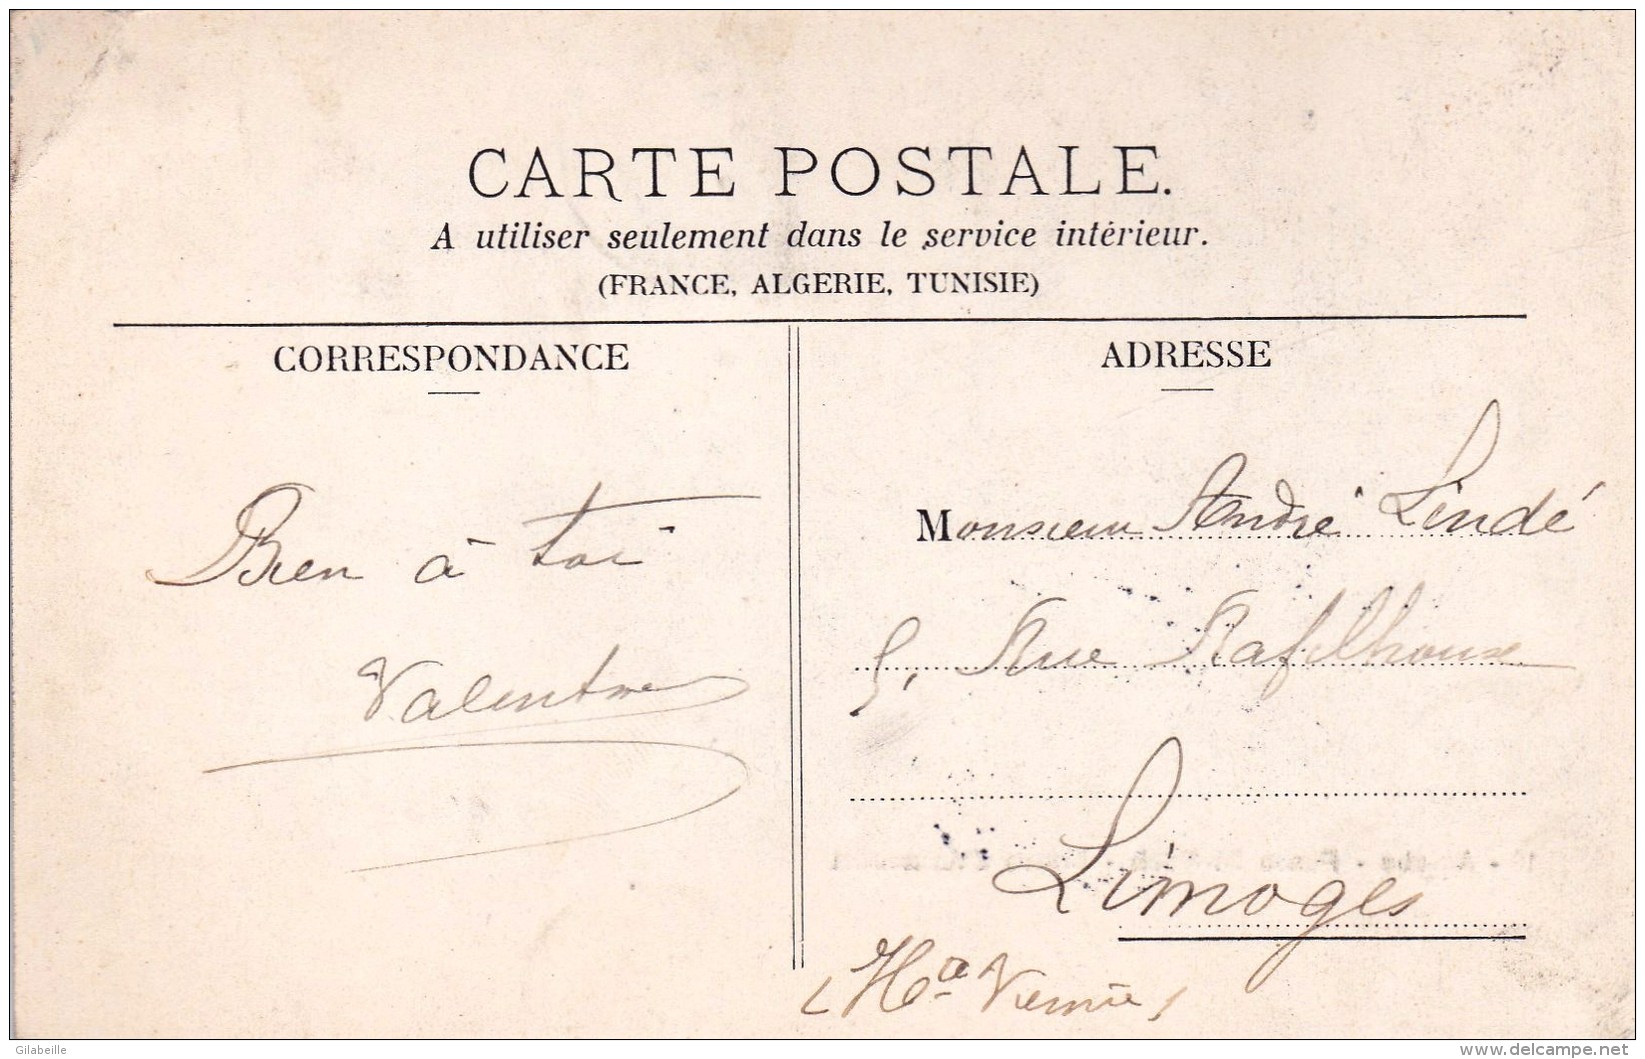 CARTE POSTALE.
A utiliser seulement dans le service intérieur.
(FRANCE, ALGERIE, TUNISIE)
CORRESPONDANCE
Bien à toi
Valentine
ADRESSE
Monsieur André Lindé
5, Rue Rafilhoux
Limoges
(Hte Vienne)
Gilabeille
www.delcampe.net